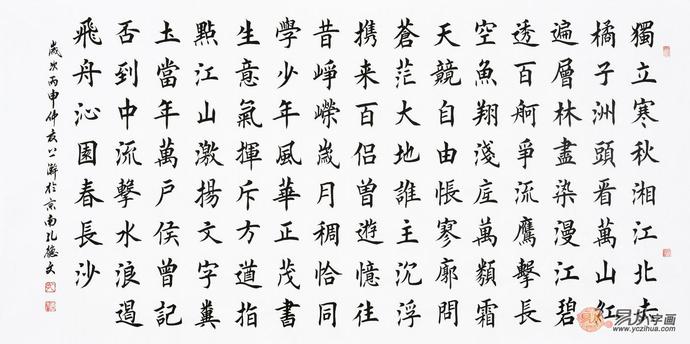 獨立寒秋湘江北去
橘子洲頭看萬山紅
遍層林盡染漫江碧
透百舸爭流鷹擊長
空魚翔淺底萬類霜
天競自由悵寥廓問
蒼茫大地誰主沉浮
携来百侣曾遊憶往
昔崢嶸歲月稠恰同
學少年風華正茂書
生意氣揮斥方遒指
點江山激揚文字糞
土當年萬戶侯曾記
否到中流擊水浪遏
飛舟沁園春長沙
歲次丙申仲澣於京南孔德文
易从字画
www.yczihua.com